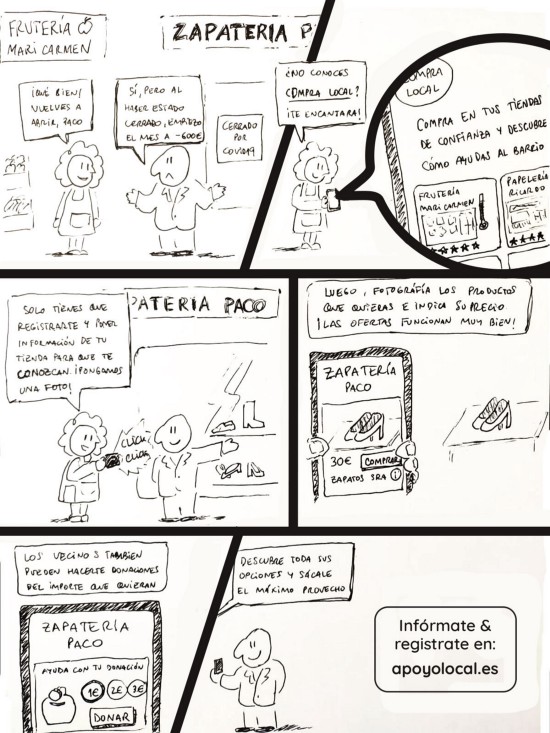 FRUTERÍA
MARI CARMEN
ZAPATERIA P
¡QUÉ BIEN!
VUELVES A
ABRIR, PACO
SÍ, PERO AL
HABER ESTADO
CERRADO, EMPIEZO
EL MES A -600€
CERRADO
POR
COVID19
¿NO CONOCES
COMPRA LOCAL?
¡TE ENCANTARÁ!
COMPRA
LOCAL
COMPRA EN TUS TIENDAS
DE CONFIANZA Y DESCUBRE
CÓMO AYUDAS AL BARRIO
FRUTERÍA
MARI CARMEN
PAPELERÍA
RICARDO
SOLO TIENES QUE
REGISTRARTE Y PONER
INFORMACIÓN DE TU
TIENDA PARA QUE TE
CONOZCAN. ¡PONGAMOS
UNA FOTO!
PATERIA PACO
CLICK
CLICK
LUEGO, FOTOGRAFÍA LOS PRODUCTOS
QUE QUIERAS E INDICA SU PRECIO
¡LAS OFERTAS FUNCIONAN MUY BIEN!
ZAPATERÍA
PACO
30€ COMPRAR
ZAPATOS SRA i
LOS VECINOS TAMBIÉN
PUEDEN HACERTE DONACIONES
DEL IMPORTE QUE QUIERAN
ZAPATERÍA
PACO
AYUDA CON TU DONACIÓN
1€ 2€ 3€
DONAR
DESCUBRE TODA SUS
OPCIONES Y SÁCALE
EL MÁXIMO PROVECHO
Infórmate &
registrate en:
apoyolocal.es